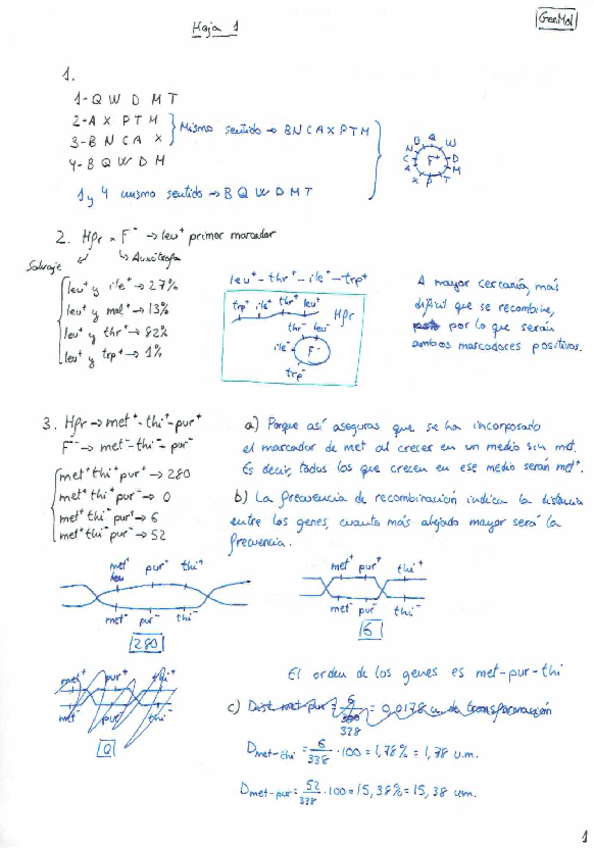 Hoja 1
GenMol
1.
1-Q W D M T
2-A X P T M
3-B N C A X
Mismo sentido → BNCAXPTM
4-B Q W D M
1 y 4 mismo sentido → B Q W D M T
B Q W
N D
C F+ M
A T
X P
2. Hfr x F- → leu+ primer marcador
Salvaje Auxótrofa
leu+ y ile+ → 27%
leu+ y mal+ → 13%
leu+ y thr+ → 82%
leu+ y trp+ → 1%
leu+ - thr+ - ile+ - trp+
trp+ ile+ thr+ leu+
Hfr
thr- leu-
ile- F-
trp-
A mayor cercanía, más
difícil que se recombine,
por lo que serán
ambos marcadores positivos.
3. Hfr → met+-thi+-pur+
F- → met- thi- pur-
met+ thi+ pur+ → 280
met+ thi+ pur- → 0
met+ thi- pur+ → 6
met+ thi- pur- → 52
a) Porque así aseguras que se ha incorporado
el marcador de met al crecer en un medio sin met.
Es decir, todos los que crecen en ese medio serán met+.
b) La frecuencia de recombinación indica la distancia
entre los genes, cuanto más alejado mayor será la
frecuencia.
met+ pur+ thi+
met- pur- thi-
280
met+ pur+ thi+
met- pur- thi-
6
met+ pur+ thi+
met- pur- thi-
0
El orden de los genes es met-pur-thi
c) Dist met-pur = 6/338 = 0,0178 u de transformación
D met-thi = 6/338 · 100 = 1,78% = 1,78 u.m.
D met-pur = 52/338 · 100 = 15,38% = 15,38 um.
1